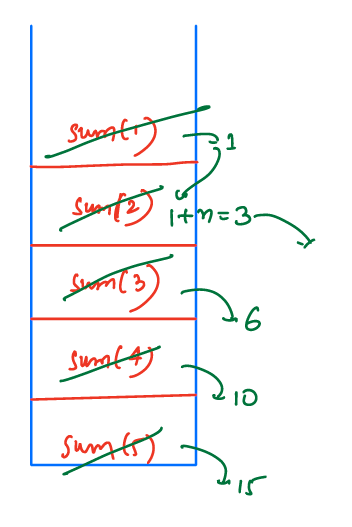 sum(1) 1
sum(2) 1+n=3
sum(3) 6
sum(4) 10
sum(5) 15